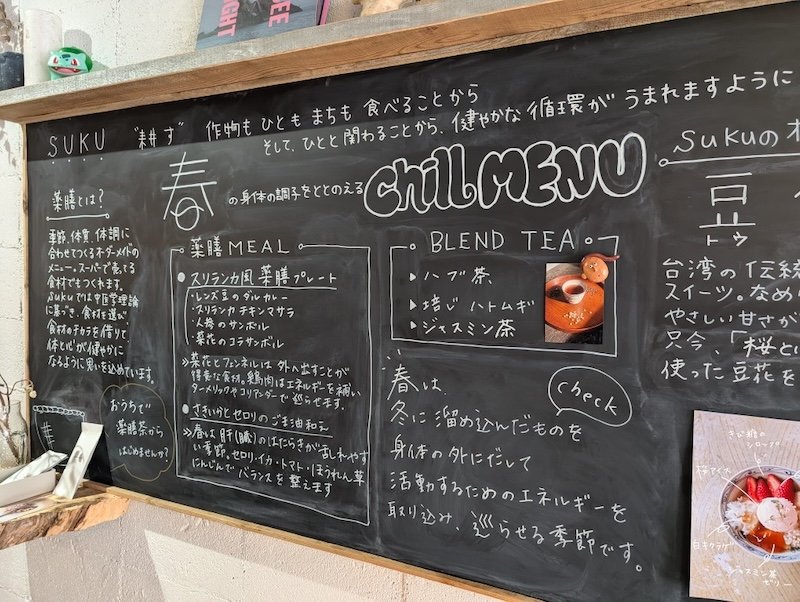 SUKU "耕す" 作物も ひとも まちも 食べることから
そして、ひとと関わることから、健やかな循環が うまれますように
春の身体の調子をととのえる Chill MENU
薬膳とは?
季節、体質、体調に
合わせてつくるオーダーメイドの
メニュー。スーパーで売ってる
食材でもつくれます。
SUKUでは中医学理論
に基づき、食材を選び
食材のチカラを借りて、
体と心が健やかに
なるように思いを込めています。
おうちで
薬膳茶から
はじめませんか?
薬膳 MEAL
スリランカ風 薬膳プレート
・レンズ豆のダルカレー
・スリランカチキンマサラ
・人参のサンボル
・菜花のコラサンボル
≫菜花とフェンネルは 外へ出すことが
得意な食材。鶏肉はエネルギーを補い
ターメリックやコリアンダーで 巡らせます。
さきいかとセロリのごま油和え
≫春は 肝(臓)のはたらきが乱れやす
い季節。セロリ・イカ・トマト・ほうれん草
にんじんで バランスを整えます
BLEND TEA
▶ハブ茶
▶焙じ ハトムギ
▶ジャスミン茶
check
春は、
冬に 溜め込んだものを
身体の外にだして
活動するためのエネルギーを
取り込み、巡らせる季節です。
SUKUの
豆
トウ
台湾の伝統
スイーツ。なめ
やさしい甘さが
只今、「桜と
使った豆花を
きび糖の
シロップ
桜アイス
白キクラゲ
ジャスミン茶
ゼリー